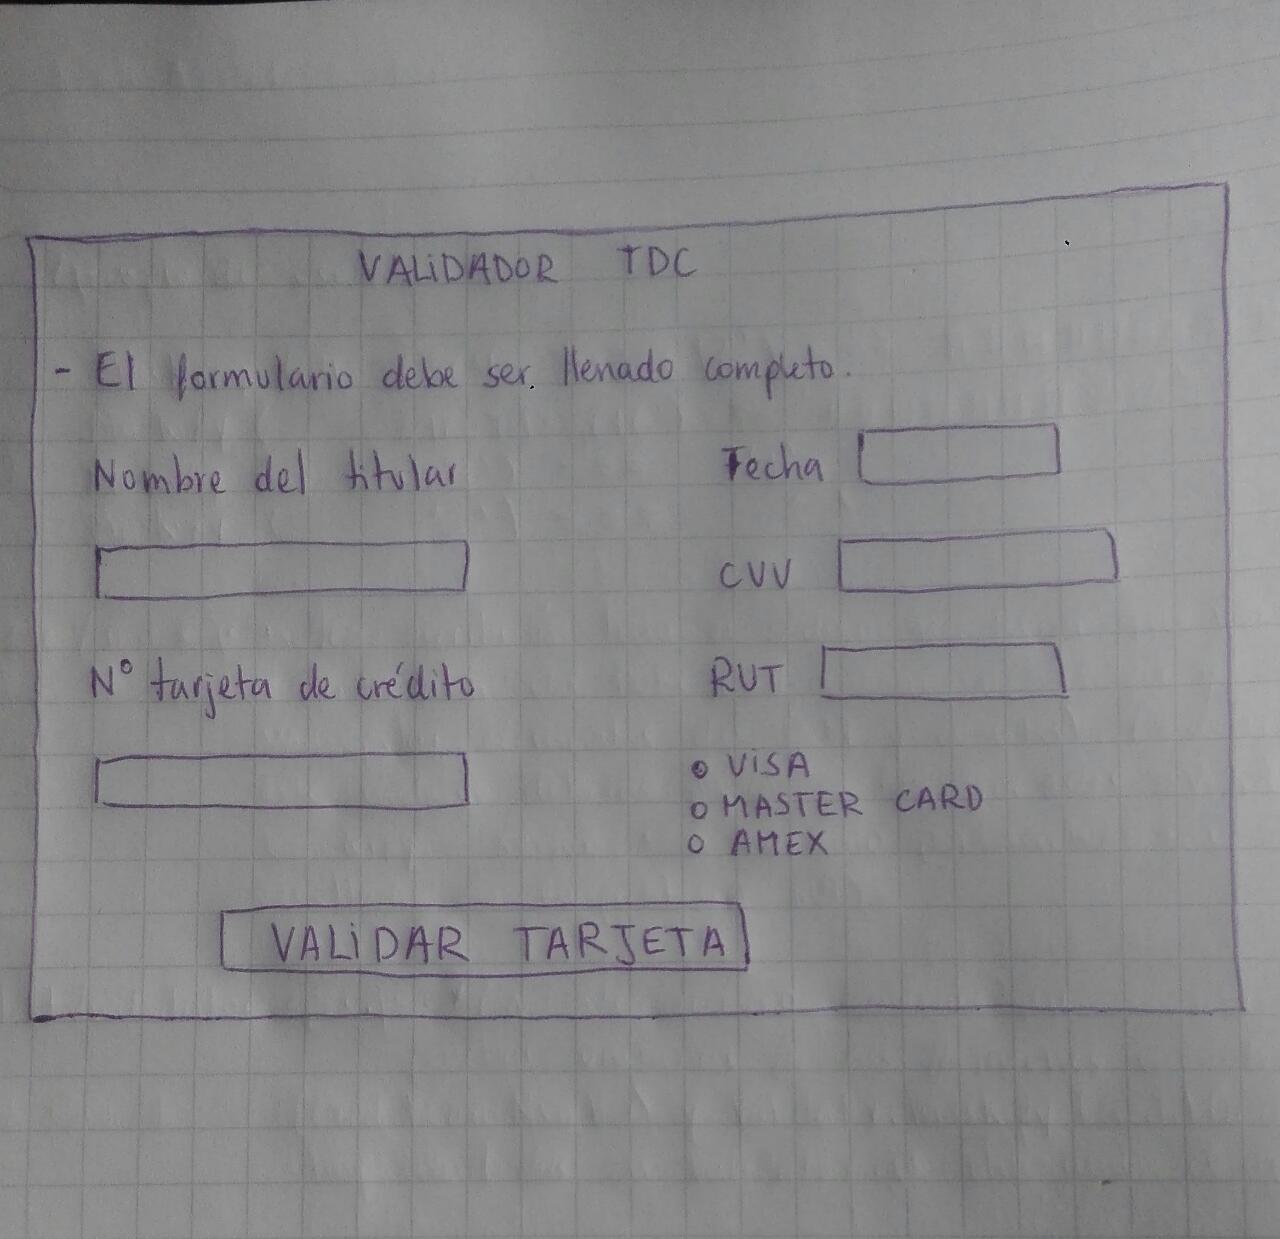 VALIDADOR TDC
- El formulario debe ser. llenado completo.
Nombre del titular
Fecha
CVV
N° tarjeta de crédito
RUT
VISA
MASTER CARD
AMEX
VALIDAR TARJETA